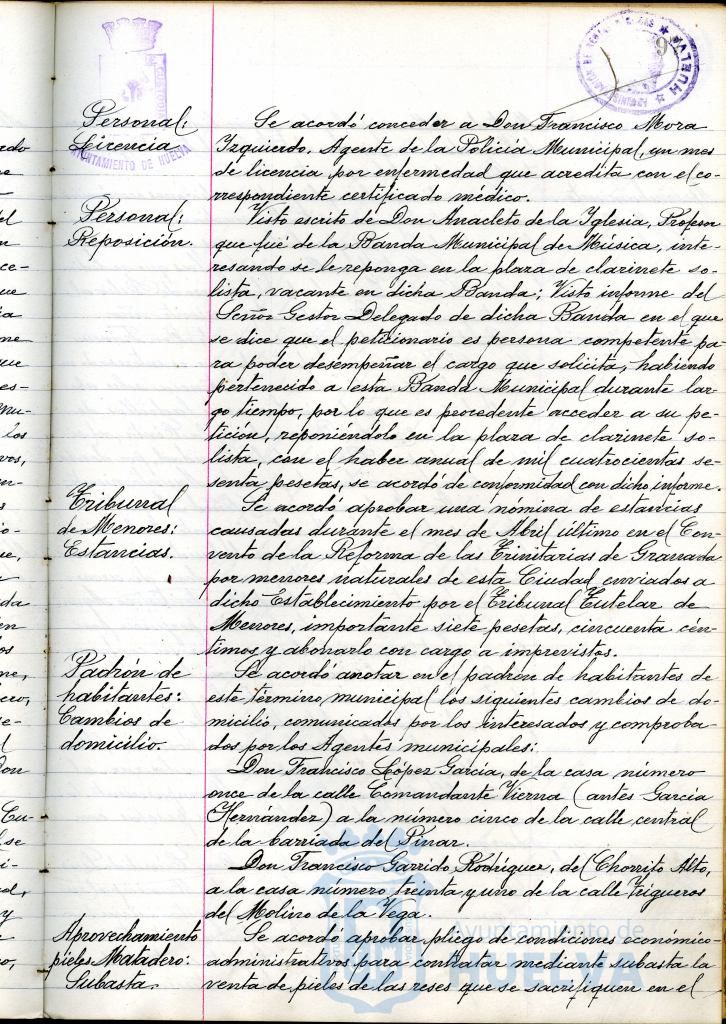 9
HUELVA
AYUNTAMIENTO DE HUELVA
Personal:
Licencia
Se acordó conceder a Don Francisco Mora
Izquierdo, Agente de la Policía Municipal, un mes
de licencia por enfermedad que acredita con el co-
rrespondiente certificado médico.
Personal:
Reposición.
Visto escrito de Don Anacleto de la Iglesia, Profesor
que fué de la Banda Municipal de Música, inte-
resando se le reponga en la plaza de clarinete so-
lista, vacante en dicha Banda; Visto informe del
Señor Gestor Delegado de dicha Banda en el que
se dice que el peticionario es persona competente pa
ra poder desempeñar el cargo que solicita, habiendo
pertenecido a esta Banda Municipal durante lar-
go tiempo, por lo que es procedente acceder a su pe-
tición, reponiéndolo en la plaza de clarinete so-
lista, con el haber anual de mil cuatrocientas se-
senta pesetas, se acordó de conformidad con dicho informe.
Tribunal
de Menores:
Estancias.
Se acordó aprobar una nómina de estancias
causadas durante el mes de Abril último en el Con-
vento de la Reforma de las Trinitarias de Granada
por menores naturales de esta Ciudad enviados a
dicho Establecimiento por el Tribunal Tutelar de
Menores, importante siete pesetas, cincuenta cén-
timos y abonarlo con cargo a imprevistos.
Padrón de
habitantes:
Cambios de
domicilio.
Se acordó anotar en el padrón de habitantes de
este término municipal los siguientes cambios de do-
micilio, comunicados por los interesados y comproba-
dos por los Agentes municipales:
Don Francisco López García, de la casa número
once de la calle Comandante Vierna (antes García
Hernández) a la número cinco de la calle central
de la barriada del Pinar.
Don Francisco Garrido Rodríguez, de Chorrito Alto,
a la casa número treinta y uno de la calle Trigueros
del Molino de la Vega.
Aprovechamiento
pieles Matadero:
Subasta.
Se acordó aprobar pliego de condiciones económico-
administrativos para contratar mediante subasta la
venta de pieles de las reses que se sacrifiquen en el
Ayuntamiento de
HUELVA